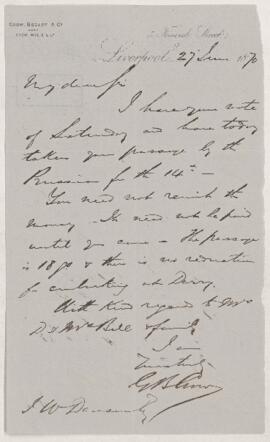 Liverpool, 27 June 1870
My dear Sir
I have your note
of Saturday and have today
taken your passage by the
Prussian for the 14th —
You need not remit the
money — It need not be paid
until you come — The passage
is 18 & there is no reduction
for embarking at Derry.
With kind regards to Mrs
D & family
I am
J W